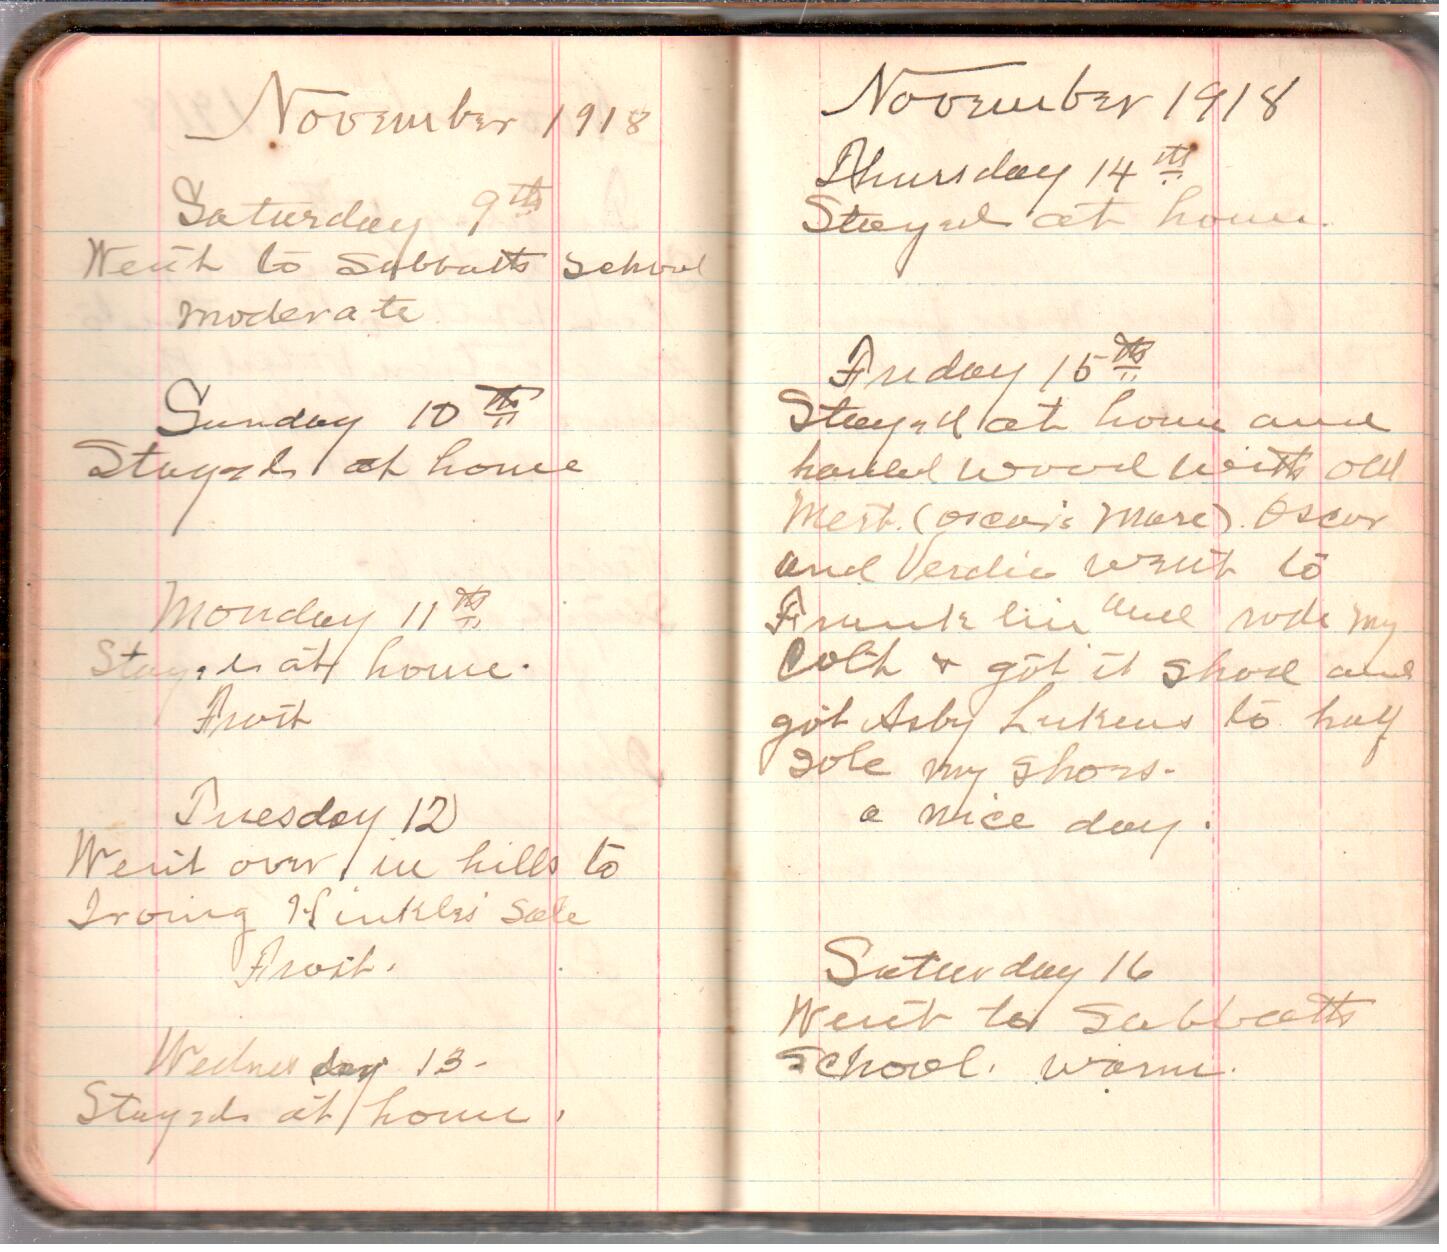 November 1918
Saturday 9th
Went to Sabbath School
moderate
Sunday 10th
Stayed at home
Monday 11th
Stayed at home.
Frost
Tuesday 12
Went over in hills to
Irving Hinkles' Sale
Frost.
Wednesday 13-
Stayed at home.
November 1918
Thursday 14th
Stayed at home.
Friday 15th
Stayed at home and
hauled wood with old
Mert. (Oscar's Mare). Oscar
and Verdie went to
Franklin and rode my
Colt & got it shod and
got Asby Lukens to half
sole my shoes.
a nice day.
Saturday 16
Went to Sabbath
School. warm.